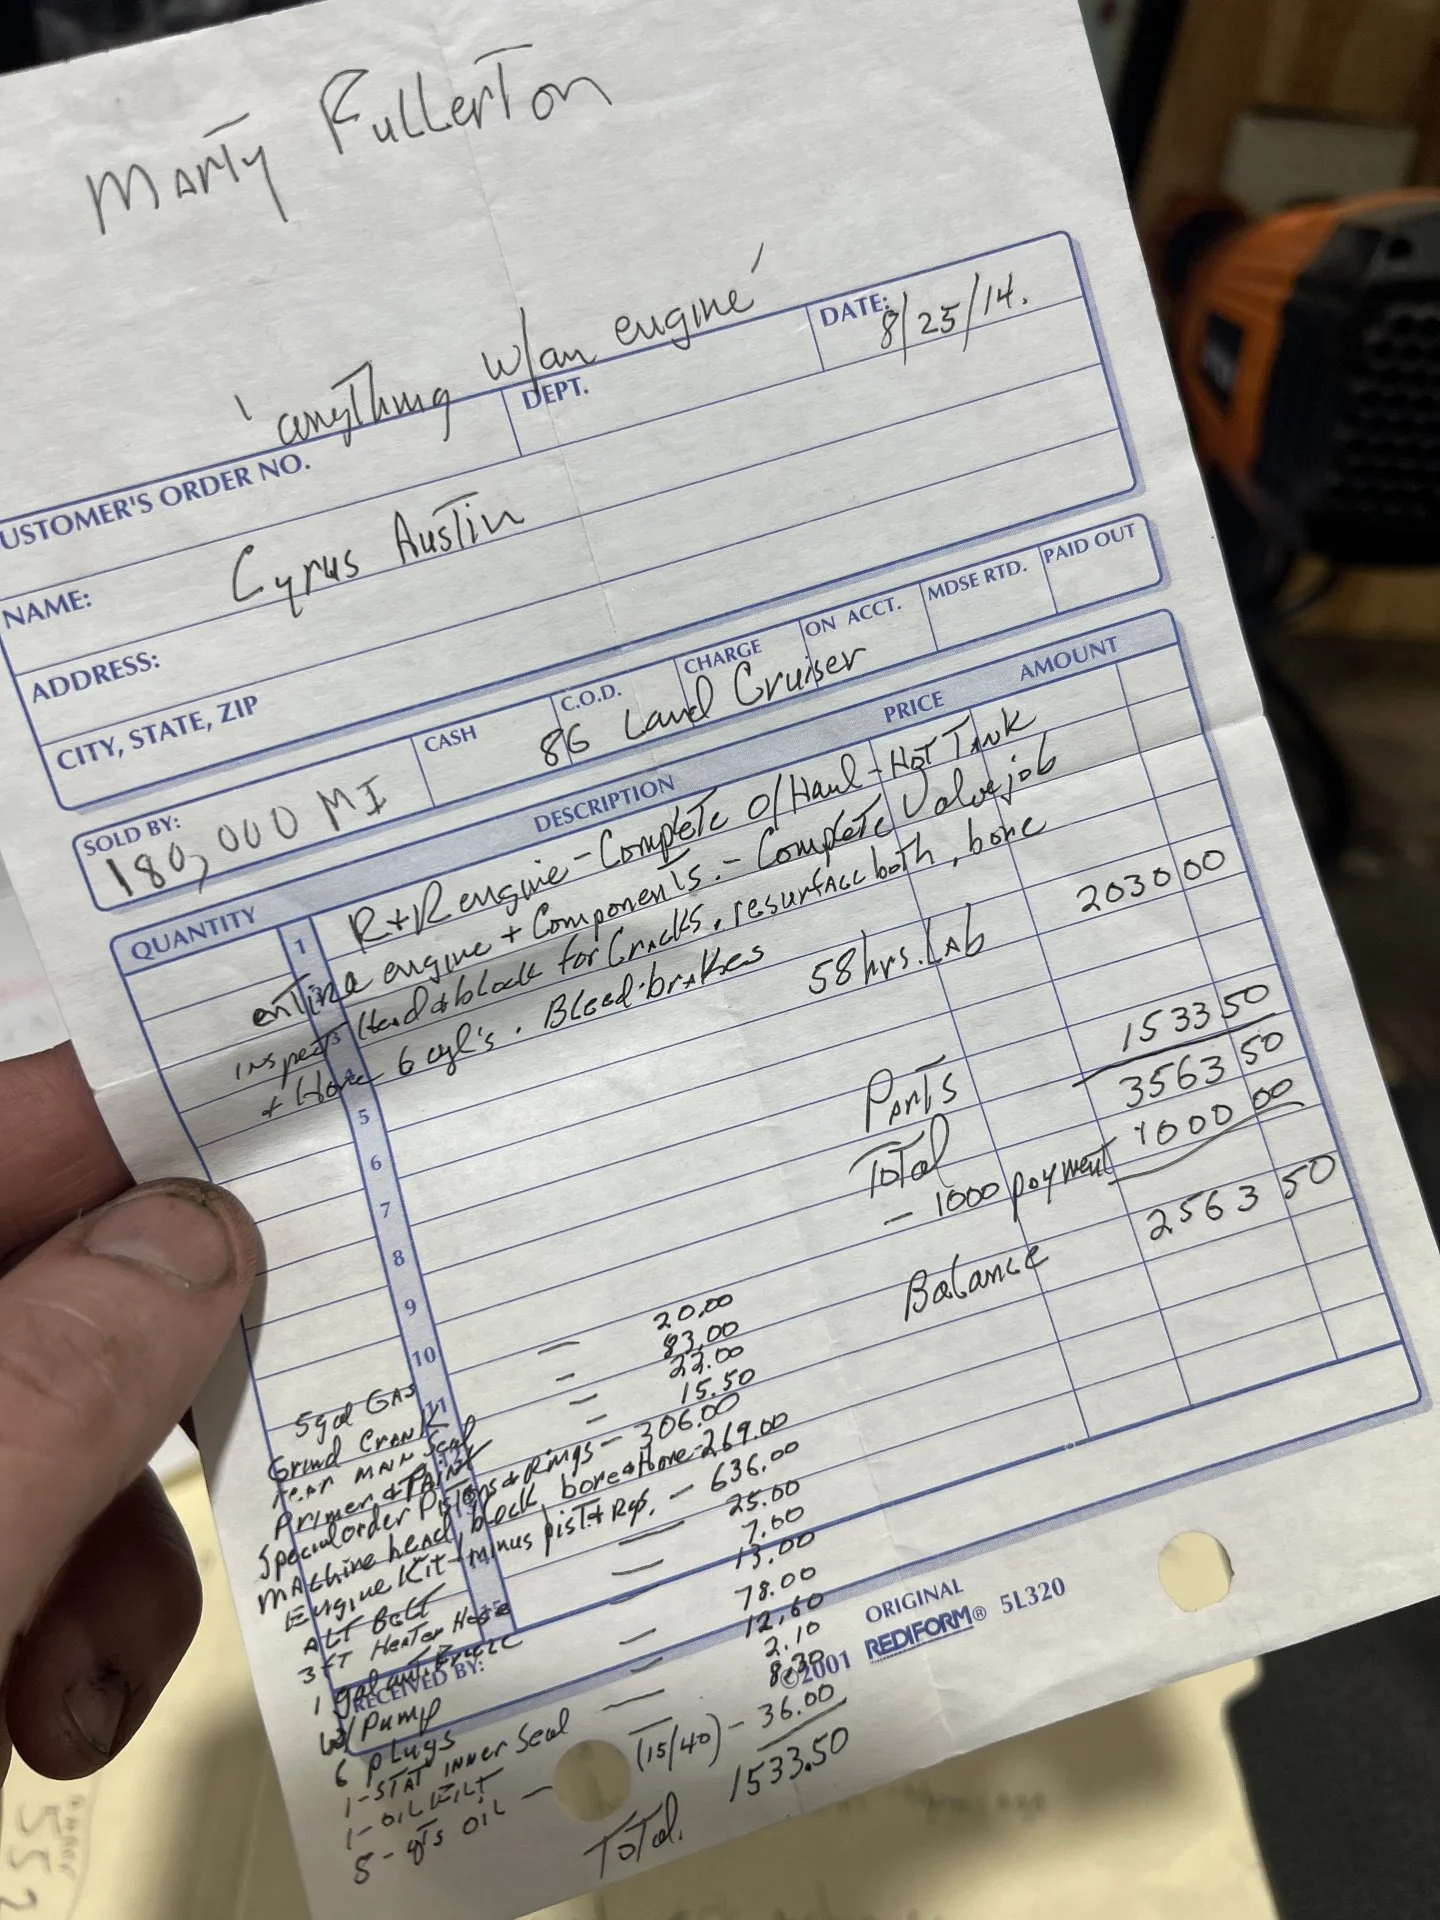 Marty Fullerton
'anything w/an engine'
USTOMER'S ORDER NO.
DEPT.
DATE: 8/25/14.
NAME: Cyrus Austin
ADDRESS:
CITY, STATE, ZIP
SOLD BY: 180,000 MI
CASH
C.O.D.
CHARGE
ON ACCT.
MDSE RTD.
PAID OUT
86 Land Cruiser
QUANTITY
DESCRIPTION
PRICE
AMOUNT
1 R+R engine - Complete o/Haul - Hot Tank
entire engine + Components. - Complete Valve job
inspect Head & block for Cracks, resurface both, bore
+ Hone 6 cyl's. Bleed brakes
58 hrs. Lab 2030 00
5
6
7
8
9
10
11
Parts 1533 50
Total 3563 50
- 1000 payment 1000 00
Balance 2563 50
5 gal GAS - 20.00
Grind Crank - 83.00
rear main Seal - 22.00
Primer & Paint - 15.50
Special order Pistons & Rings - 306.00
Machine head, block, bore & Hone - 269.00
Engine Kit - minus pist + Rgs. - 636.00
ALT Belt - 25.00
3 FT Heater Hose - 7.00
1 gal antifreeze 13.00
W/Pump - 78.00
6 plugs - 12.60
1-STAT INNER Seal - 2.10
1-OIL FILT - 8.30
8-qts OIL - (15/40) - 36.00
Total. 1533.50
RECEIVED BY:
ORIGINAL
©2001 REDIFORM® 5L320
552